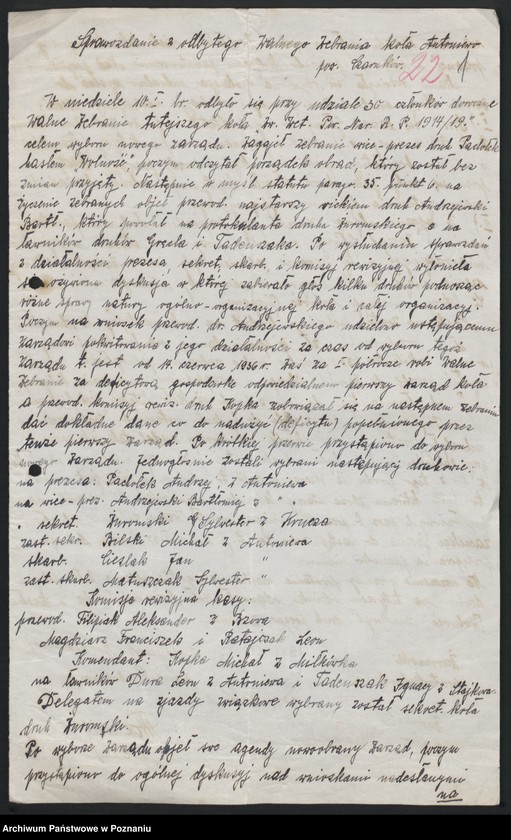 Sprawozdanie z odbytego Walnego Zebrania koła Antoniewo
pow. Czarnków.
22
W niedziele 10.I. br. odbyło się przy udziale 30 członków doroczne
Walne Zebranie tutejszego koła Zw. Wet. Pow. Nar. R. P. 1914/19.
celem wyboru nowego zarządu. Zagajeł zebranie wice-prezes druh Pachołek
hasłem "Wolność", poczym odczytał porządek obrad, który został bez
zmian przyjęty. Następnie w myśl statutu paragr. 35. punkt 6. na
życzenie zebranych objeł przewod. najstarszy wiekiem druh Andrzejewski
Bartł., który powołał na protokulanta druha Żuromskiego a na
ławników druhów Gresla i Tadeuszaka. Po wysłuchaniu sprawozdań
z działalności prezesa, sekret, skarb. i komisyj rewizyjnej wyłoniła
się ożywiona dyskusja w którą zabierało głos kilku druhów poruszając
różne sprawy natury ogólno-organizacyjnej koła i całej organizacyj.
Poczym na wniosek przewod. dr. Andrzejewskiego udzielono ustępującemu
Zarządowi pokwitowania z jego działalności za czas od wyboru tegoż
Zarządu t. jest od 14. czerwca 1936 r. zaś za I. półrocze robi Walne
Zebranie za deficytową gospodarkę odpowiedzialnem pierwszy zarząd koła
a przewod. komisyj rewiz. druh Kojka zobowiązał się na następnem zebraniu
dać dokładne dane co do nadużyć (deficytu) popełnionego przez
tenże pierwszy zarząd. Po krótkiej przerwie przystąpiono do wyboru
nowego Zarządu. Jednogłośnie zostali wybrani następujący druhowie:
na prezesa: Pachołek Andrzej, z Antoniewa
na wice-prez. Andrzejewski Bartłomiej z " .
" sekret. Żuromski Sylwester z Krucza
zast. sekr. Bilski Michał z Antoniewa
skarb. Cieslak Jan "
zast. skarb. Matuszczak Sylwester "
Komisja rewizyjna kasy:
przewod. Filipiak Aleksander z Bzowa
Magdziarz Franciszek i Ratajczak Leon
Komendant: Kojka Michał z Miłkówka
na ławników Dura Leon z Antoniewa i Tadeuszak Ignacy z Stajkowa
Delegatem na zjazdy związkowe wybrany został sekret. koła
druh Żuromski.
Po wyborze Zarządu objeł swe agendy nowoobrany Zarząd, poczym
przystąpiono do ogólnej dyskusyj nad wnioskami nadesłanymi
na
Archiwum Państwowe w Poznaniu